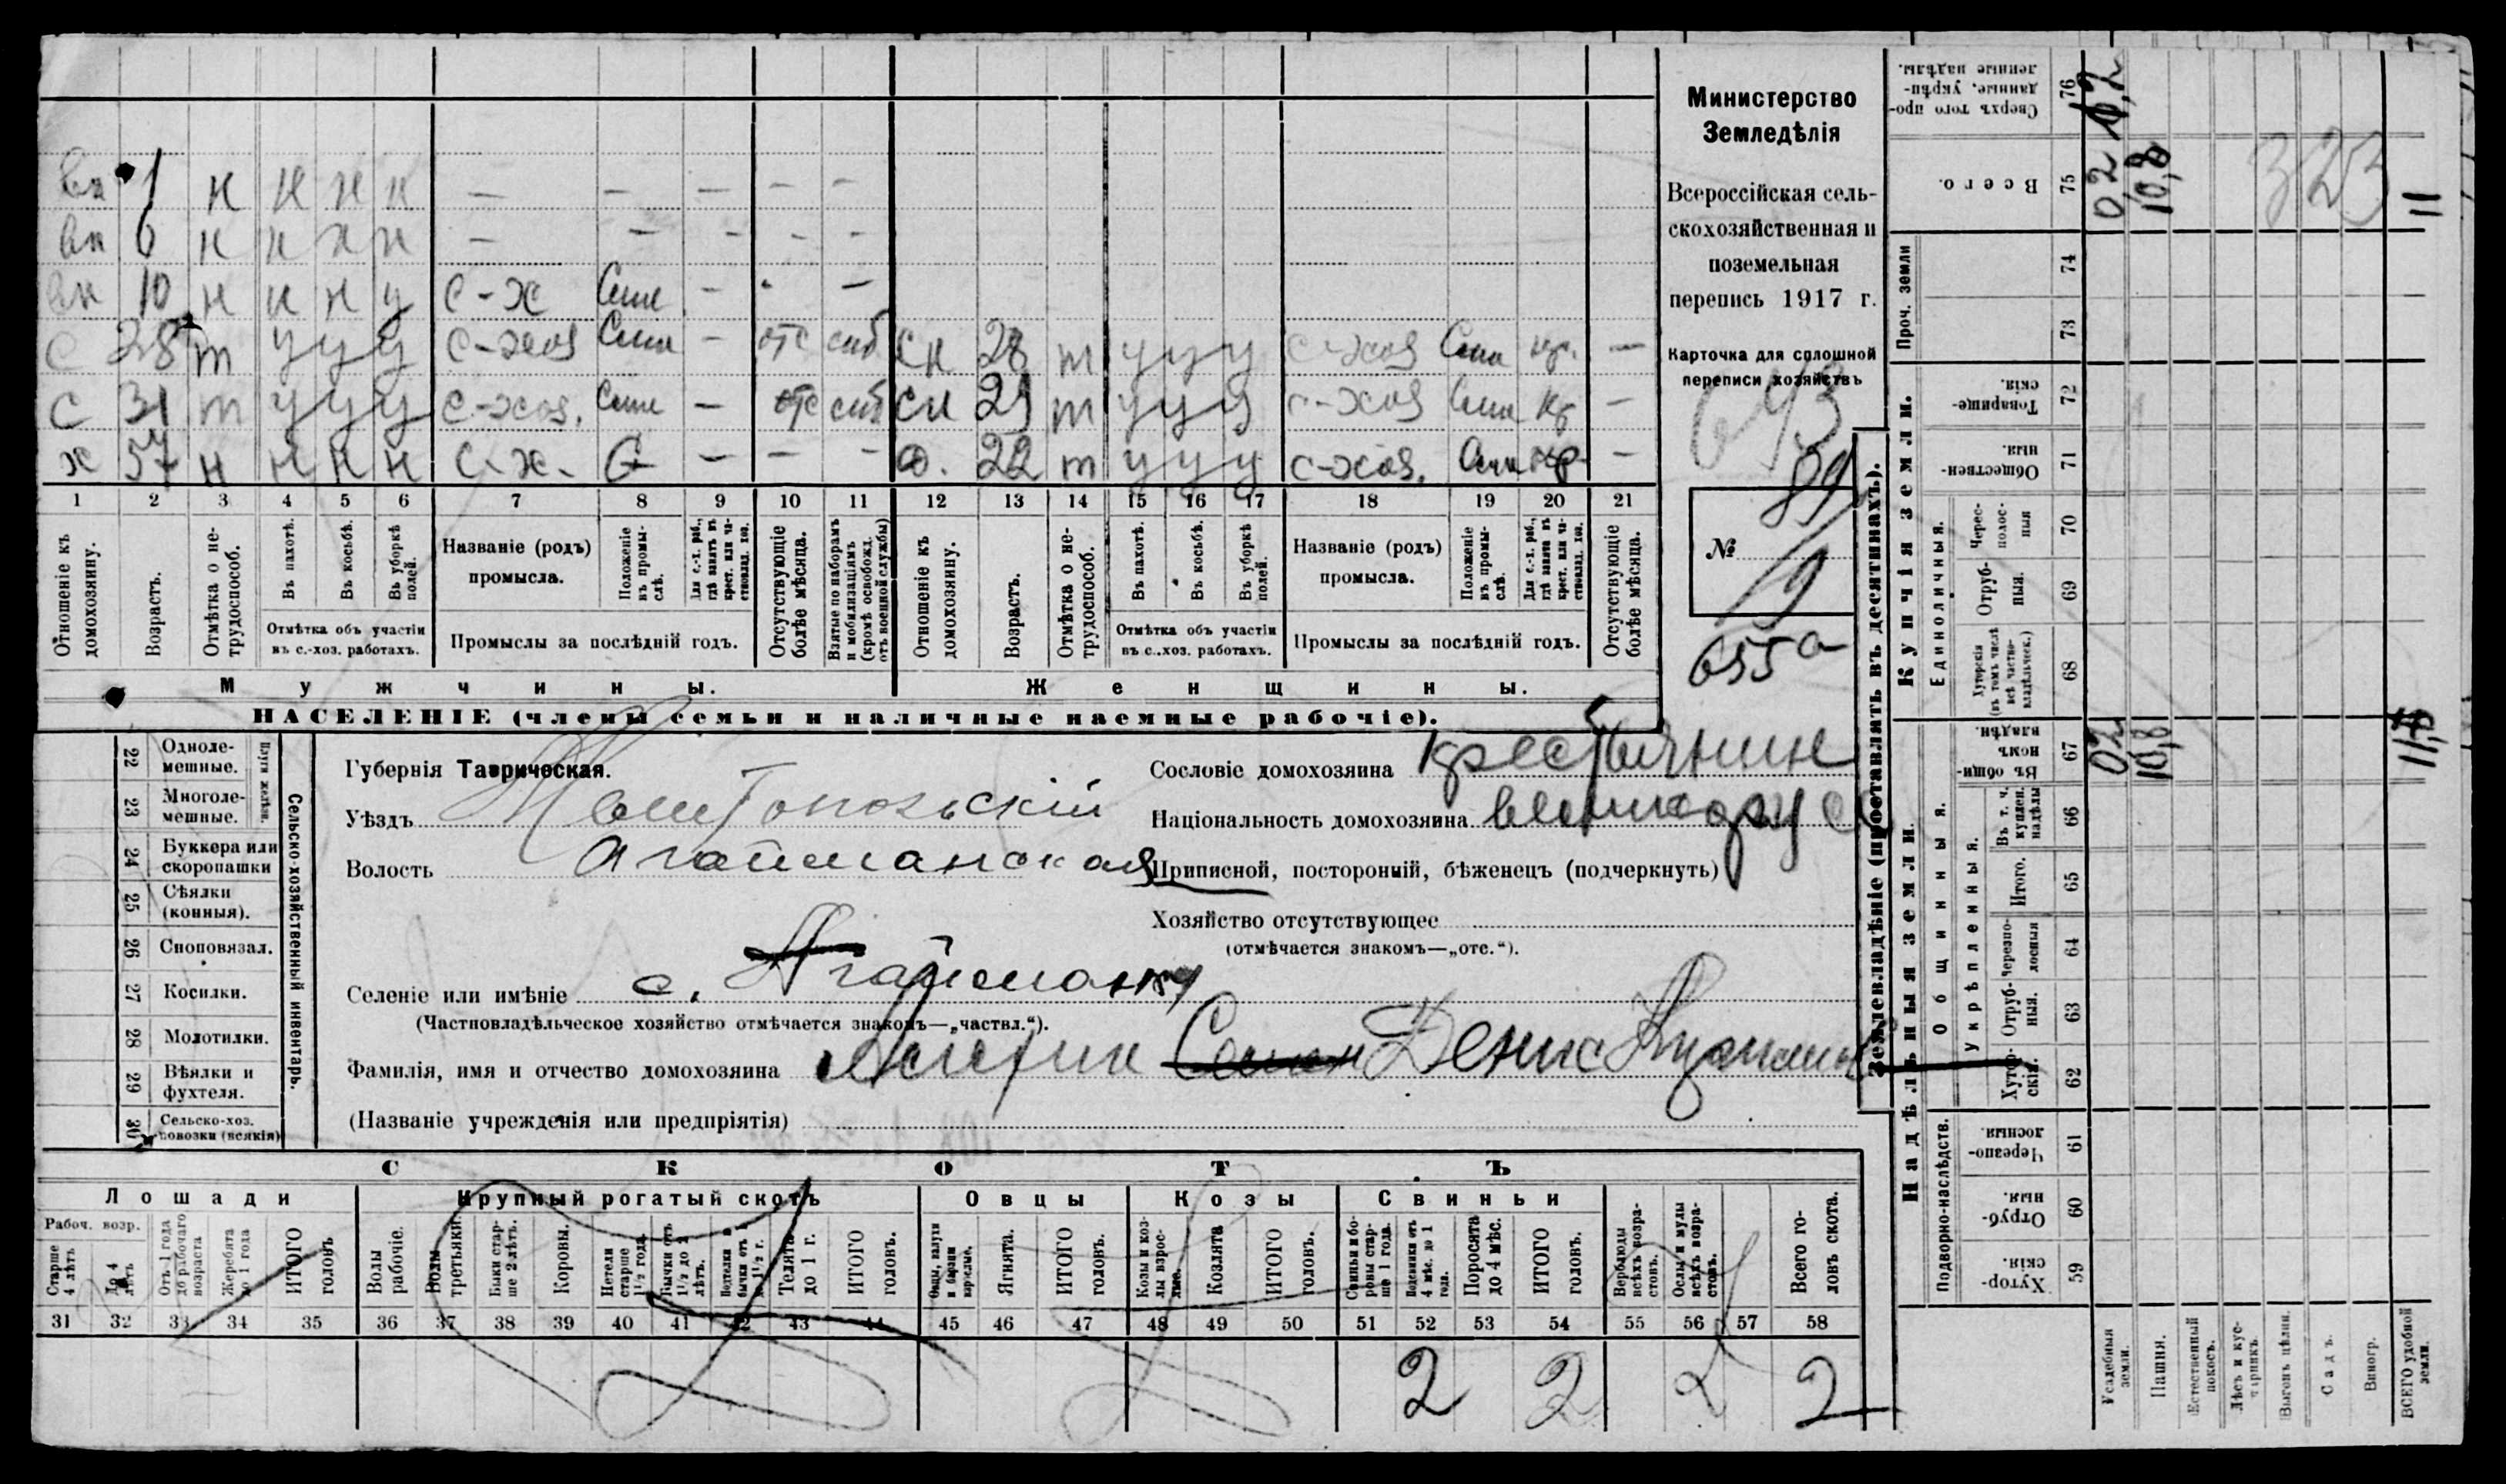 вн 1 н н н н — — — — —
вн 6 н н н н — — — — —
вн 10 н н н у с-х — —
с т у у у с-хоз — отс сн 28 т у у у с-хоз —
с 31 т у у у с-хоз. — отс сн т у у у с-хоз —
х 57 н н н н с-х. — — — 22 т у у у с-хоз. —
1 2 3 4 5 6 7 8 9 10 11 12 13 14 15 16 17 18 19 20 21
Отношеніе къ домохозяину.
Возрастъ.
Отмѣтка о нетрудоспособ.
Въ пахотѣ.
Въ косьбѣ.
Въ уборкѣ полей.
Отмѣтка объ участіи
въ с.-хоз. работахъ.
Названіе (родъ)
промысла.
Положеніе въ промыслѣ.
Для с.-х. раб., гдѣ занятъ въ крест. или частновлад. хоз.
Промыслы за послѣдній годъ.
Отсутствующіе болѣе мѣсяца.
Взятые по наборамъ и мобилизаціямъ (кромѣ освобожд. отъ военной службы)
Отношеніе къ домохозяину.
Возрастъ.
Отмѣтка о нетрудоспособ.
Въ пахотѣ.
Въ косьбѣ.
Въ уборкѣ полей.
Отмѣтка объ участіи
въ с.-хоз. работахъ.
Названіе (родъ)
промысла.
Положеніе въ промыслѣ.
Для с.-х. раб., гдѣ занята въ крест. или частновлад. хоз.
Промыслы за послѣдній годъ.
Отсутствующіе болѣе мѣсяца.
Мужчины.
Женщины.
НАСЕЛЕНІЕ (члены семьи и наличные наемные рабочіе).
Министерство
Земледѣлія
Всероссійская сель-
скохозяйственная и
поземельная
перепись 1917 г.
Карточка для сплошной
переписи хозяйствъ
643
89
№
9
655а
22 Одноле-
мешные.
23 Многоле-
мешные.
Плуги желѣзн.
24 Буккера или
скоропашки
25 Сѣялки
(конныя).
26 Сноповязал.
27 Косилки.
28 Молотилки.
29 Вѣялки и
фухтеля.
30 Сельско-хоз.
повозки (всякія)
Сельско-хозяйственный инвентарь.
Губернія Таврическая.
Уѣздъ Мелитопольскій
Волость Агайманская
Селеніе или имѣніе с. Агайманы
(Частновладѣльческое хозяйство отмѣчается знакомъ—„частвл.“).
Фамилія, имя и отчество домохозяина Семен Денис
(Названіе учрежденія или предпріятія)
Сословіе домохозяина крестьянин
Національность домохозяина великорус
Приписной, посторонній, бѣженецъ (подчеркнуть)
Хозяйство отсутствующее
(отмѣчается знакомъ—„отс.“).
СКОТЪ
Лошади
Рабоч. возр.
Старше 4 лѣтъ
До 4 лѣтъ
Отъ 1 года до рабочаго возраста
Жеребята до 1 года
ИТОГО головъ
Крупный рогатый скотъ
Волы рабочіе.
Волы третьяки.
Быки старше 2 лѣтъ.
Коровы.
Нетели старше 1½ года.
Бычки отъ 1½ до 2 лѣтъ.
Телята до 1 г.
ИТОГО головъ.
Овцы
Ягнята.
ИТОГО головъ.
Козы
Козы и козлы взрослые.
Козлята
ИТОГО головъ.
Свиньи
Свиньи и боровы старше 1 года.
Подсвинки отъ 4 мѣс. до 1 года.
Поросята до 4 мѣс.
ИТОГО головъ.
Верблюды всѣхъ возрастовъ.
Ослы и мулы всѣхъ возрастовъ.
Всего головъ скота.
31 32 33 34 35 36 37 38 39 40 41 42 43 44 45 46 47 48 49 50 51 52 53 54 55 56 57 58
2 2 2
Землевладѣніе (проставлять въ десятинахъ).
Сверхъ того проданные, укрѣпленные надѣлы. 76
Всего. 75 0,2 10,8 323 11
Проч. земли
74
73
Купчія земли.
Товарищескія. 72
Общественныя. 71
Единоличныя.
Чересполосныя 70
Отрубныя. 69
Хуторскія (въ томъ числѣ всѣ частновладѣльческ.) 68
Надѣльныя земли.
Общинныя.
Въ общинномъ владѣн. 67 0,2 10,8
Укрѣпленныя.
Въ т. ч. куплен. надѣлы 66
Итого. 65
Черезполосныя 64
Отрубныя. 63
Хуторскія. 62
Подворно-наслѣдств.
Черезполосныя. 61
Отрубныя. 60
Хуторскія. 59
Усадебныя земли.
Пашня.
Естественный покосъ.
Лѣсъ и кустарникъ.
Выгонъ цѣлин.
Садъ.
Виногр.
ВСЕГО удобной земли.